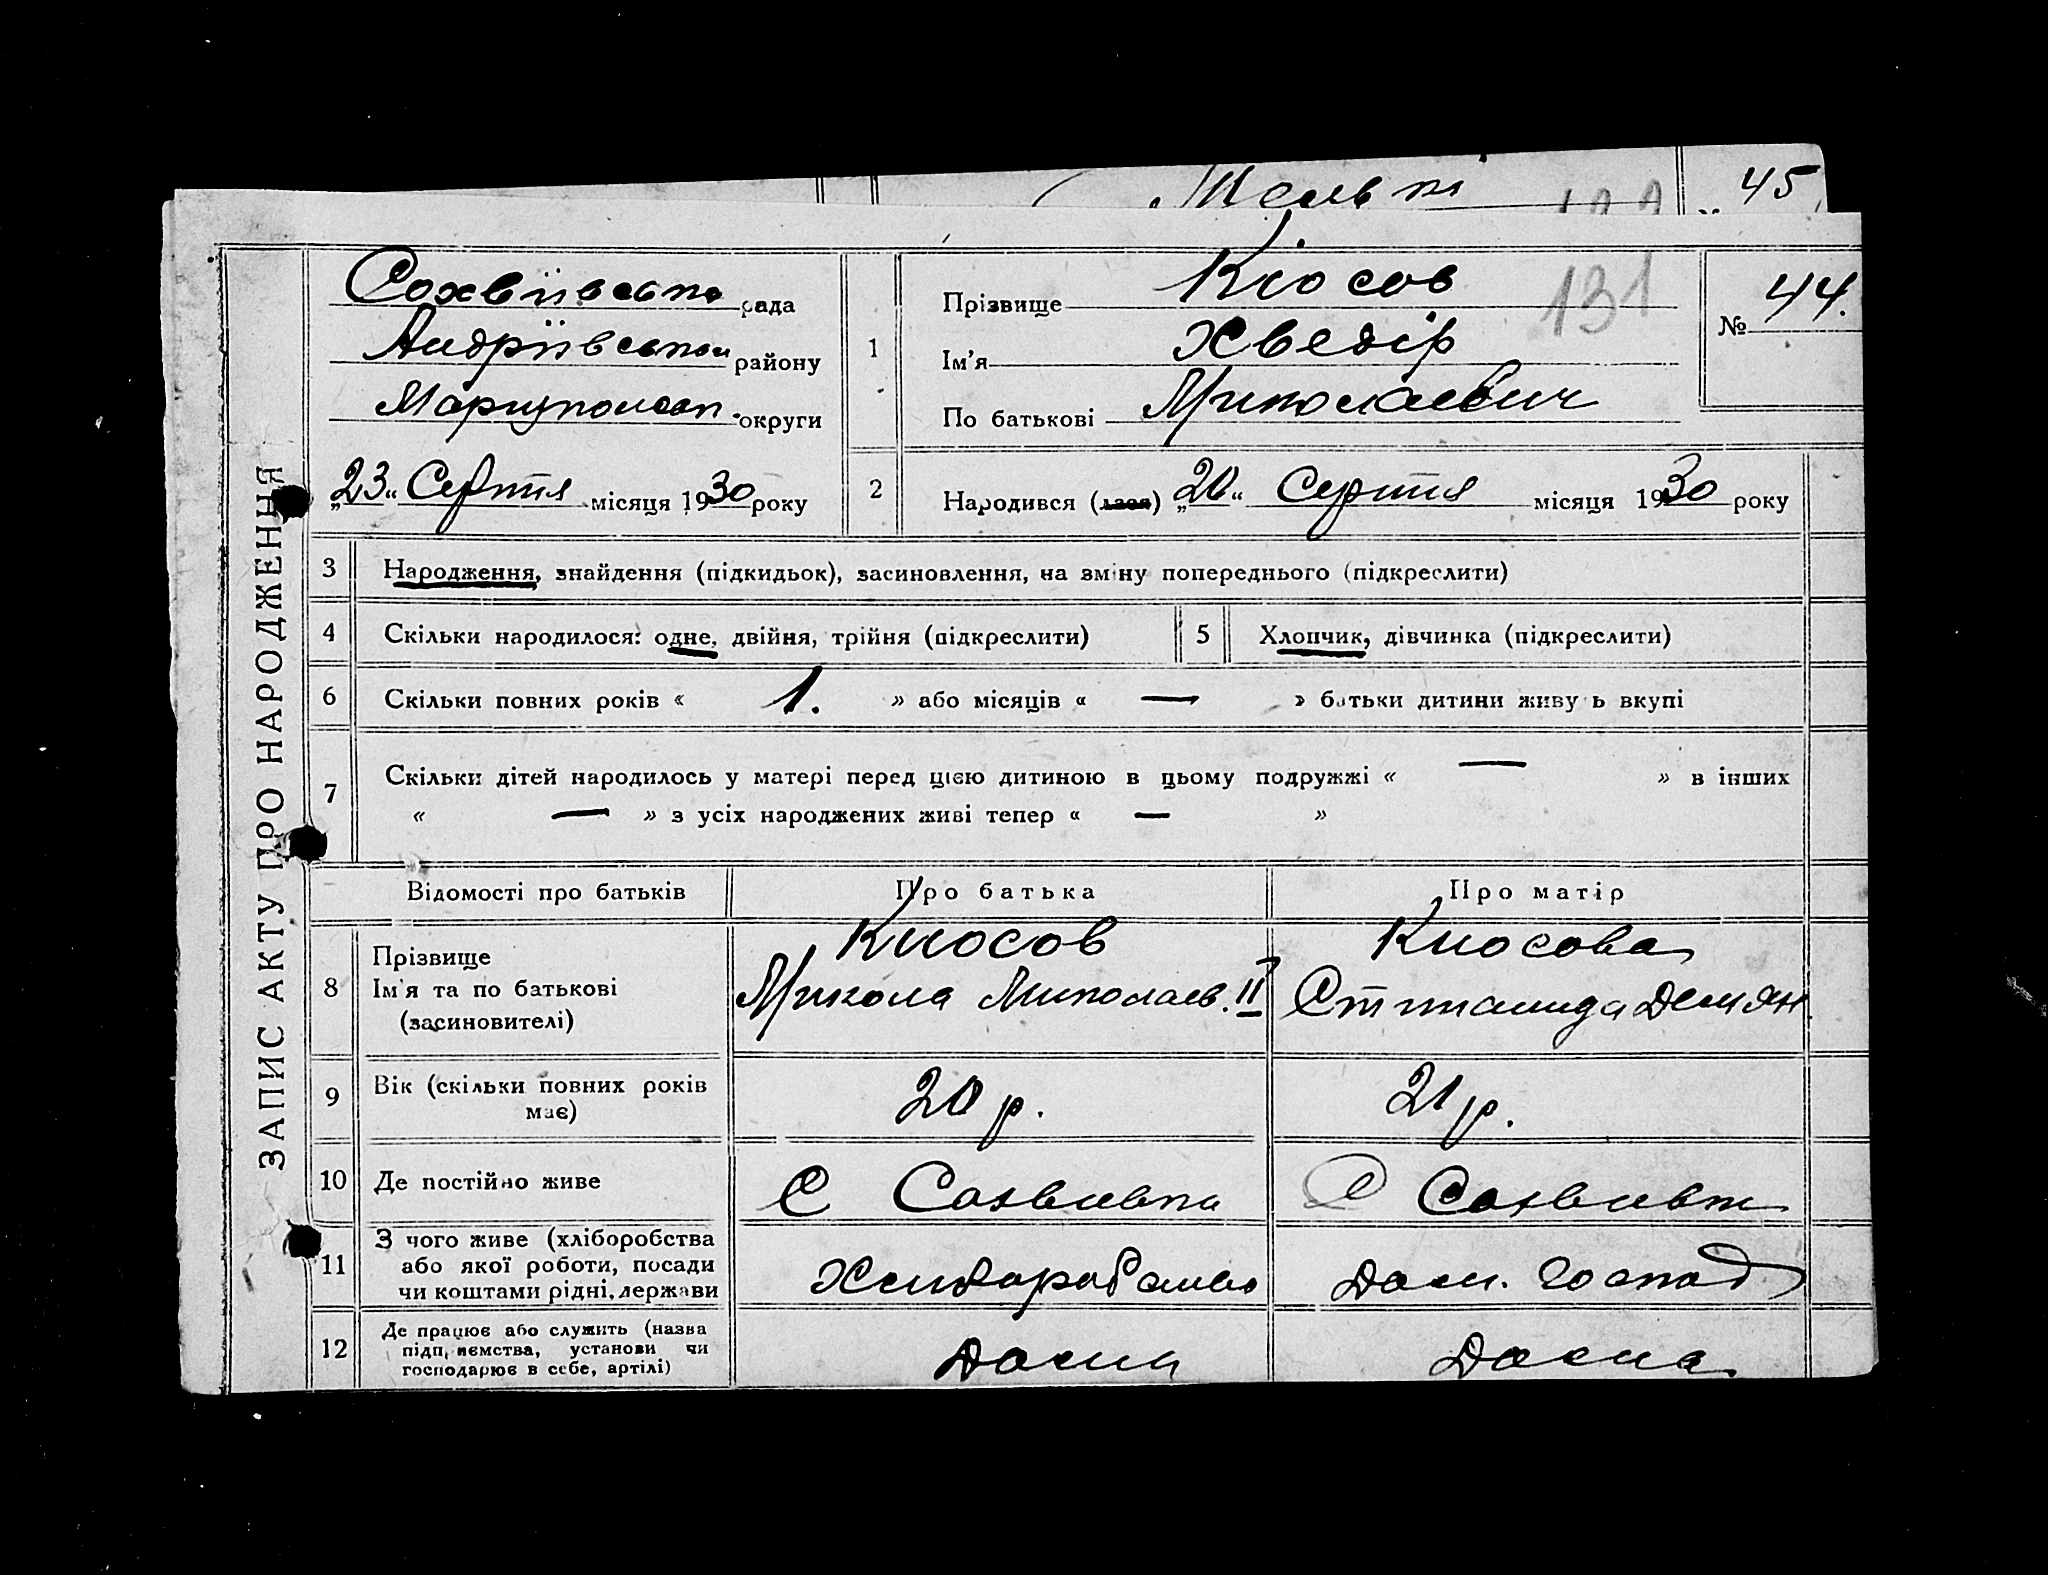 45
ЗАПИС АКТУ ПРО НАРОДЖЕННЯ
Сохвіівська рада
Андріівського району
Маріупольск. округи
„23“ Серпня місяця 1930 року
1
Прізвище Кюсов
131
Ім'я Хведір
По батькові Миколаевич
№ 44.
2
Народився (лася) „20“ Серпня місяця 1930 року
3 Народження, знайдення (підкидьок), засиновлення, на зміну попереднього (підкреслити)
4 Скільки народилося: одне, двійня, трійня (підкреслити)
5 Хлопчик, дівчинка (підкреслити)
6 Скільки повних років « 1. » або місяців « — » батьки дитини живуть вкупі
7 Скільки дітей народилось у матері перед цією дитиною в цьому подружжі « — » в інших
« — » з усіх народжених живі тепер « — »
Відомості про батьків Про батька Про матір
8
Прізвище
Ім'я та по батькові
(засиновителі)
Кюсов
Микола Миколаев. II
Кюсова
Демян.
9
Вік (скільки повних років
має)
20 р.
21 р.
10 Де постійно живе
С Сохвиевка
С Сохвиевка
11
З чого живе (хліборобства
або якої роботи, посади
чи коштами рідні, держави
Хлиборобство
Дом. господ
12
Де працює або служить (назва
підприємства, установи чи
господарює в себе, артілі)
Дома
Дома